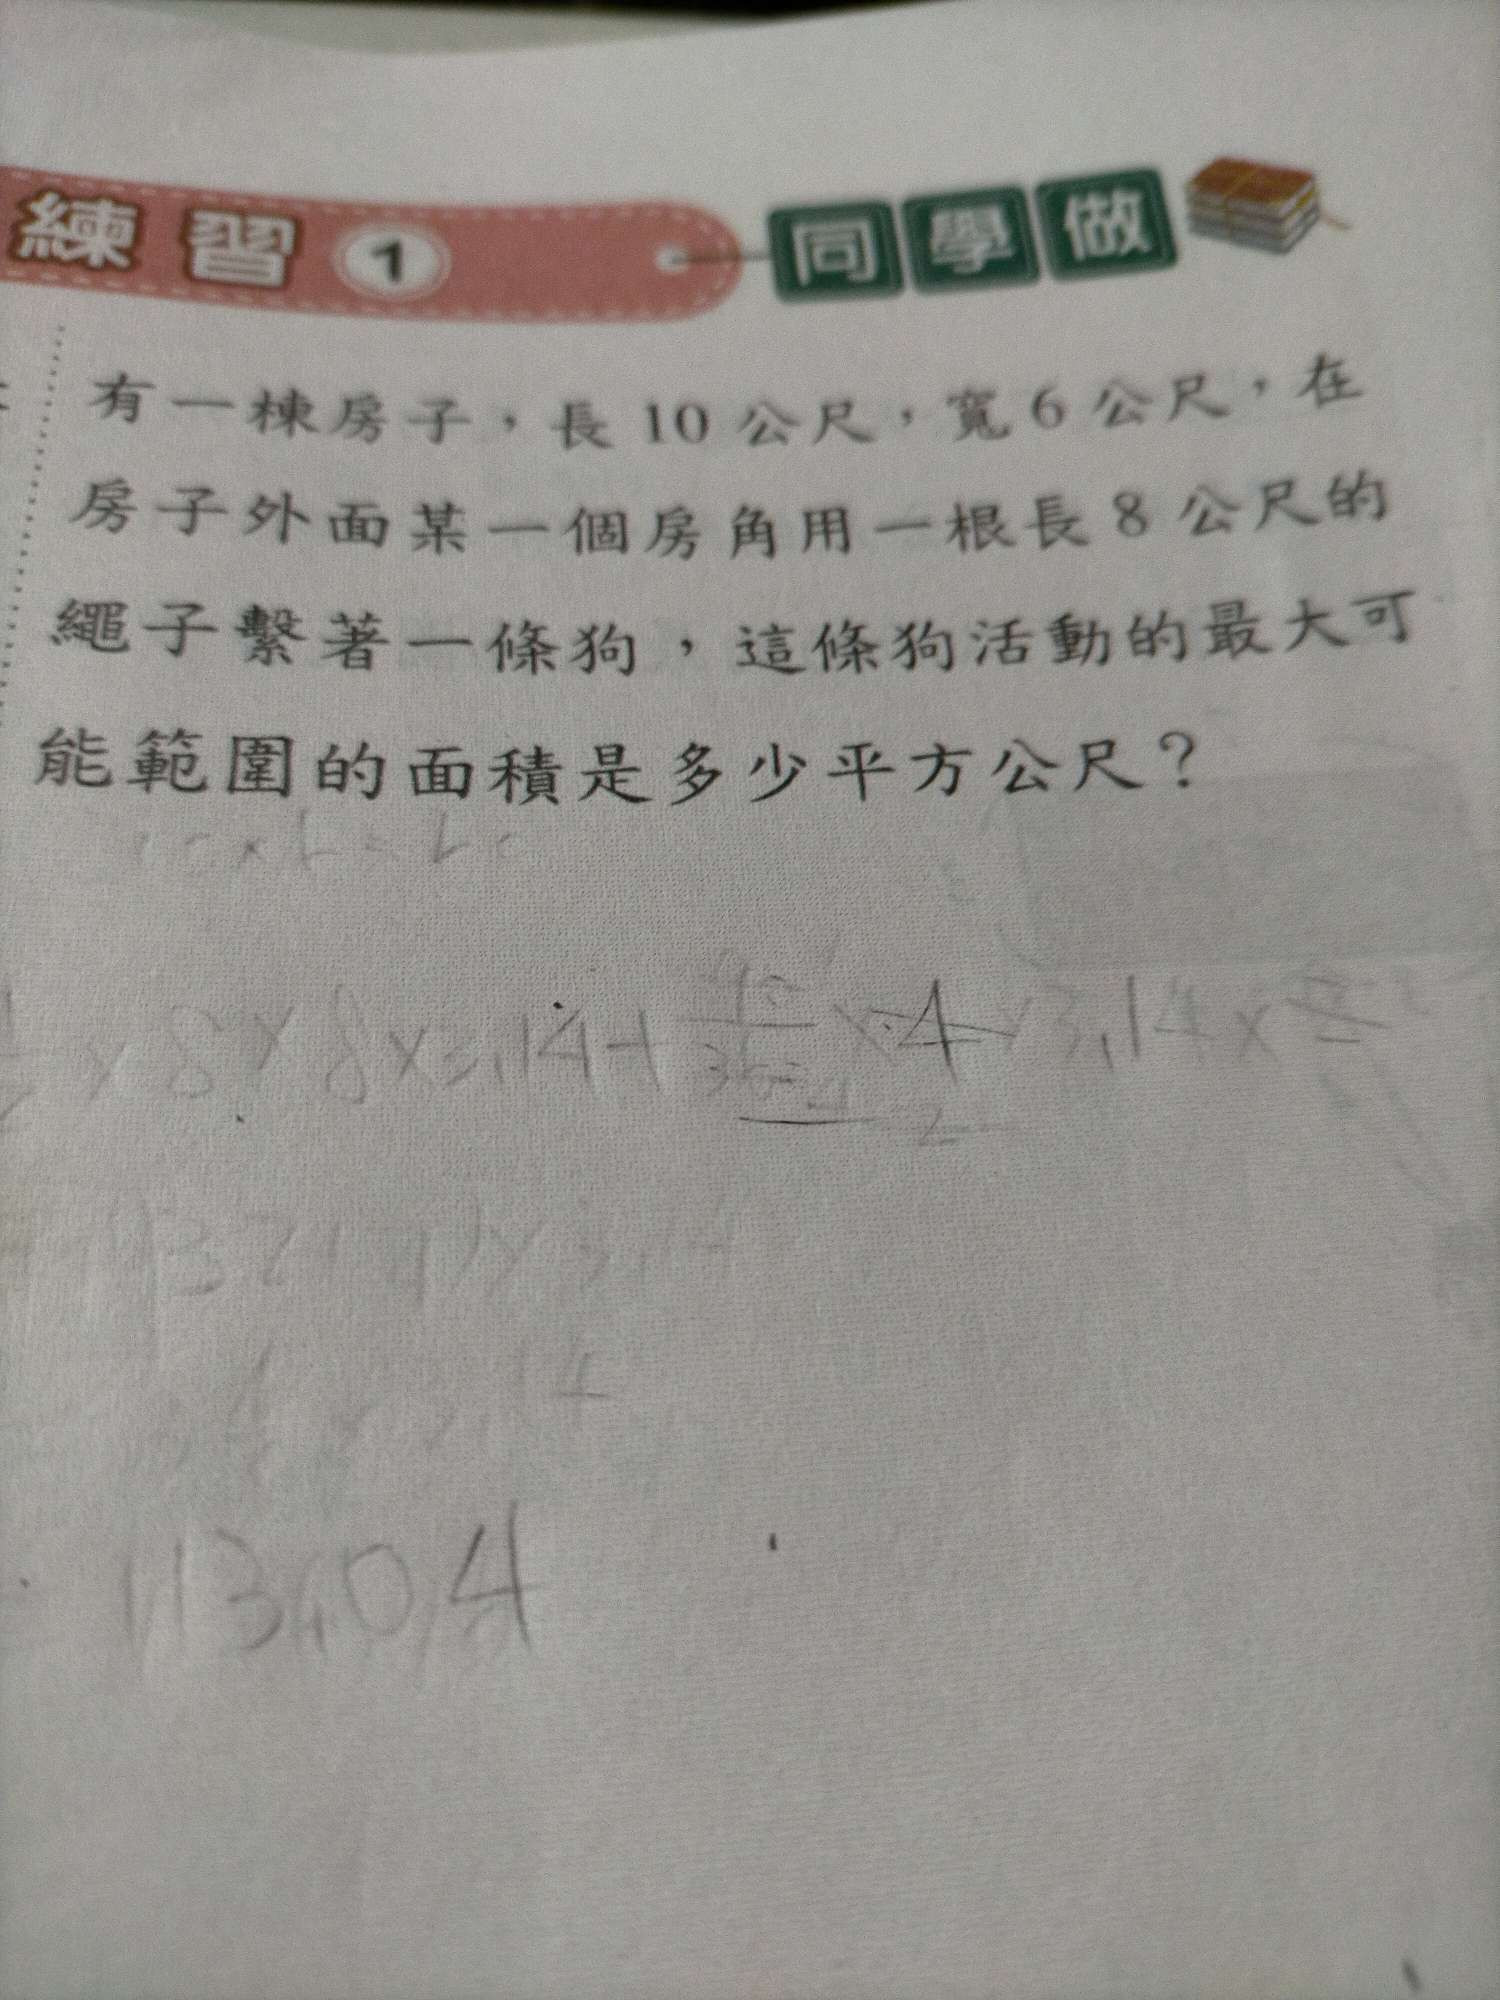 練習1 同學做
有一棟房子，長10公尺，寬6公尺，在
房子外面某一個房角用一根長8公尺的
繩子繫著一條狗，這條狗活動的最大可
能範圍的面積是多少平方公尺？
8×8×3.14+
×3.14×
113.04